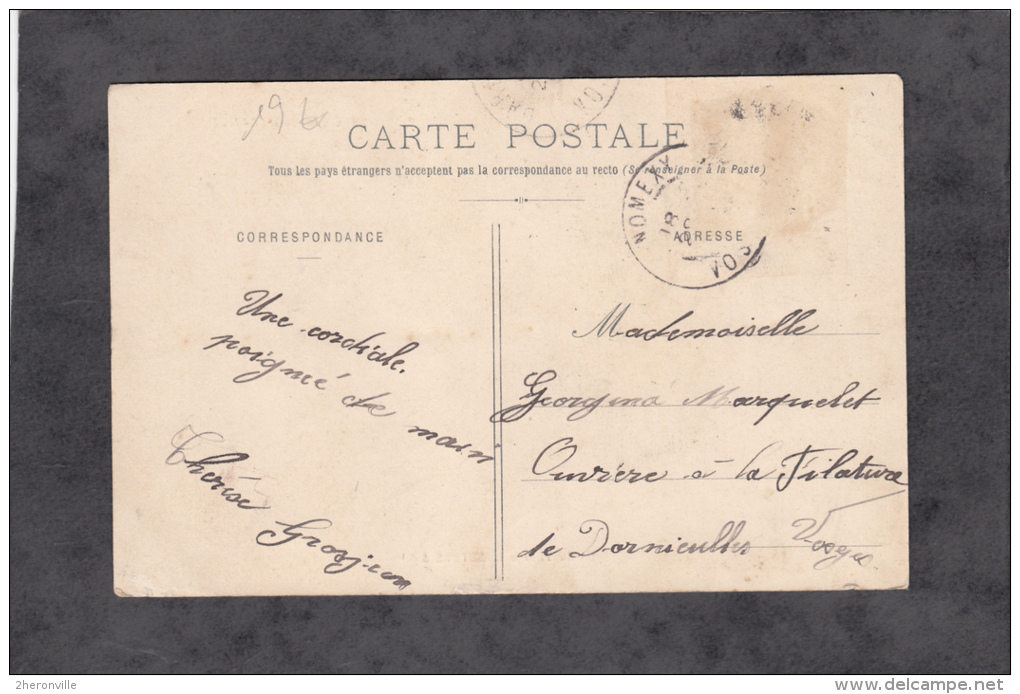 CARTE POSTALE
Tous les pays étrangers n'acceptent pas la correspondance au recto (Se renseigner à la Poste)
CORRESPONDANCE
ADRESSE
NOMEXY
18
VOS
Une cordiale.
poigné de
main
Thérèse Grosjean
Mademoiselle
Georgina Marquelet
Ouvrière à la Filature
de Dornieulles Vosges
2heronville
www.delcampe.net